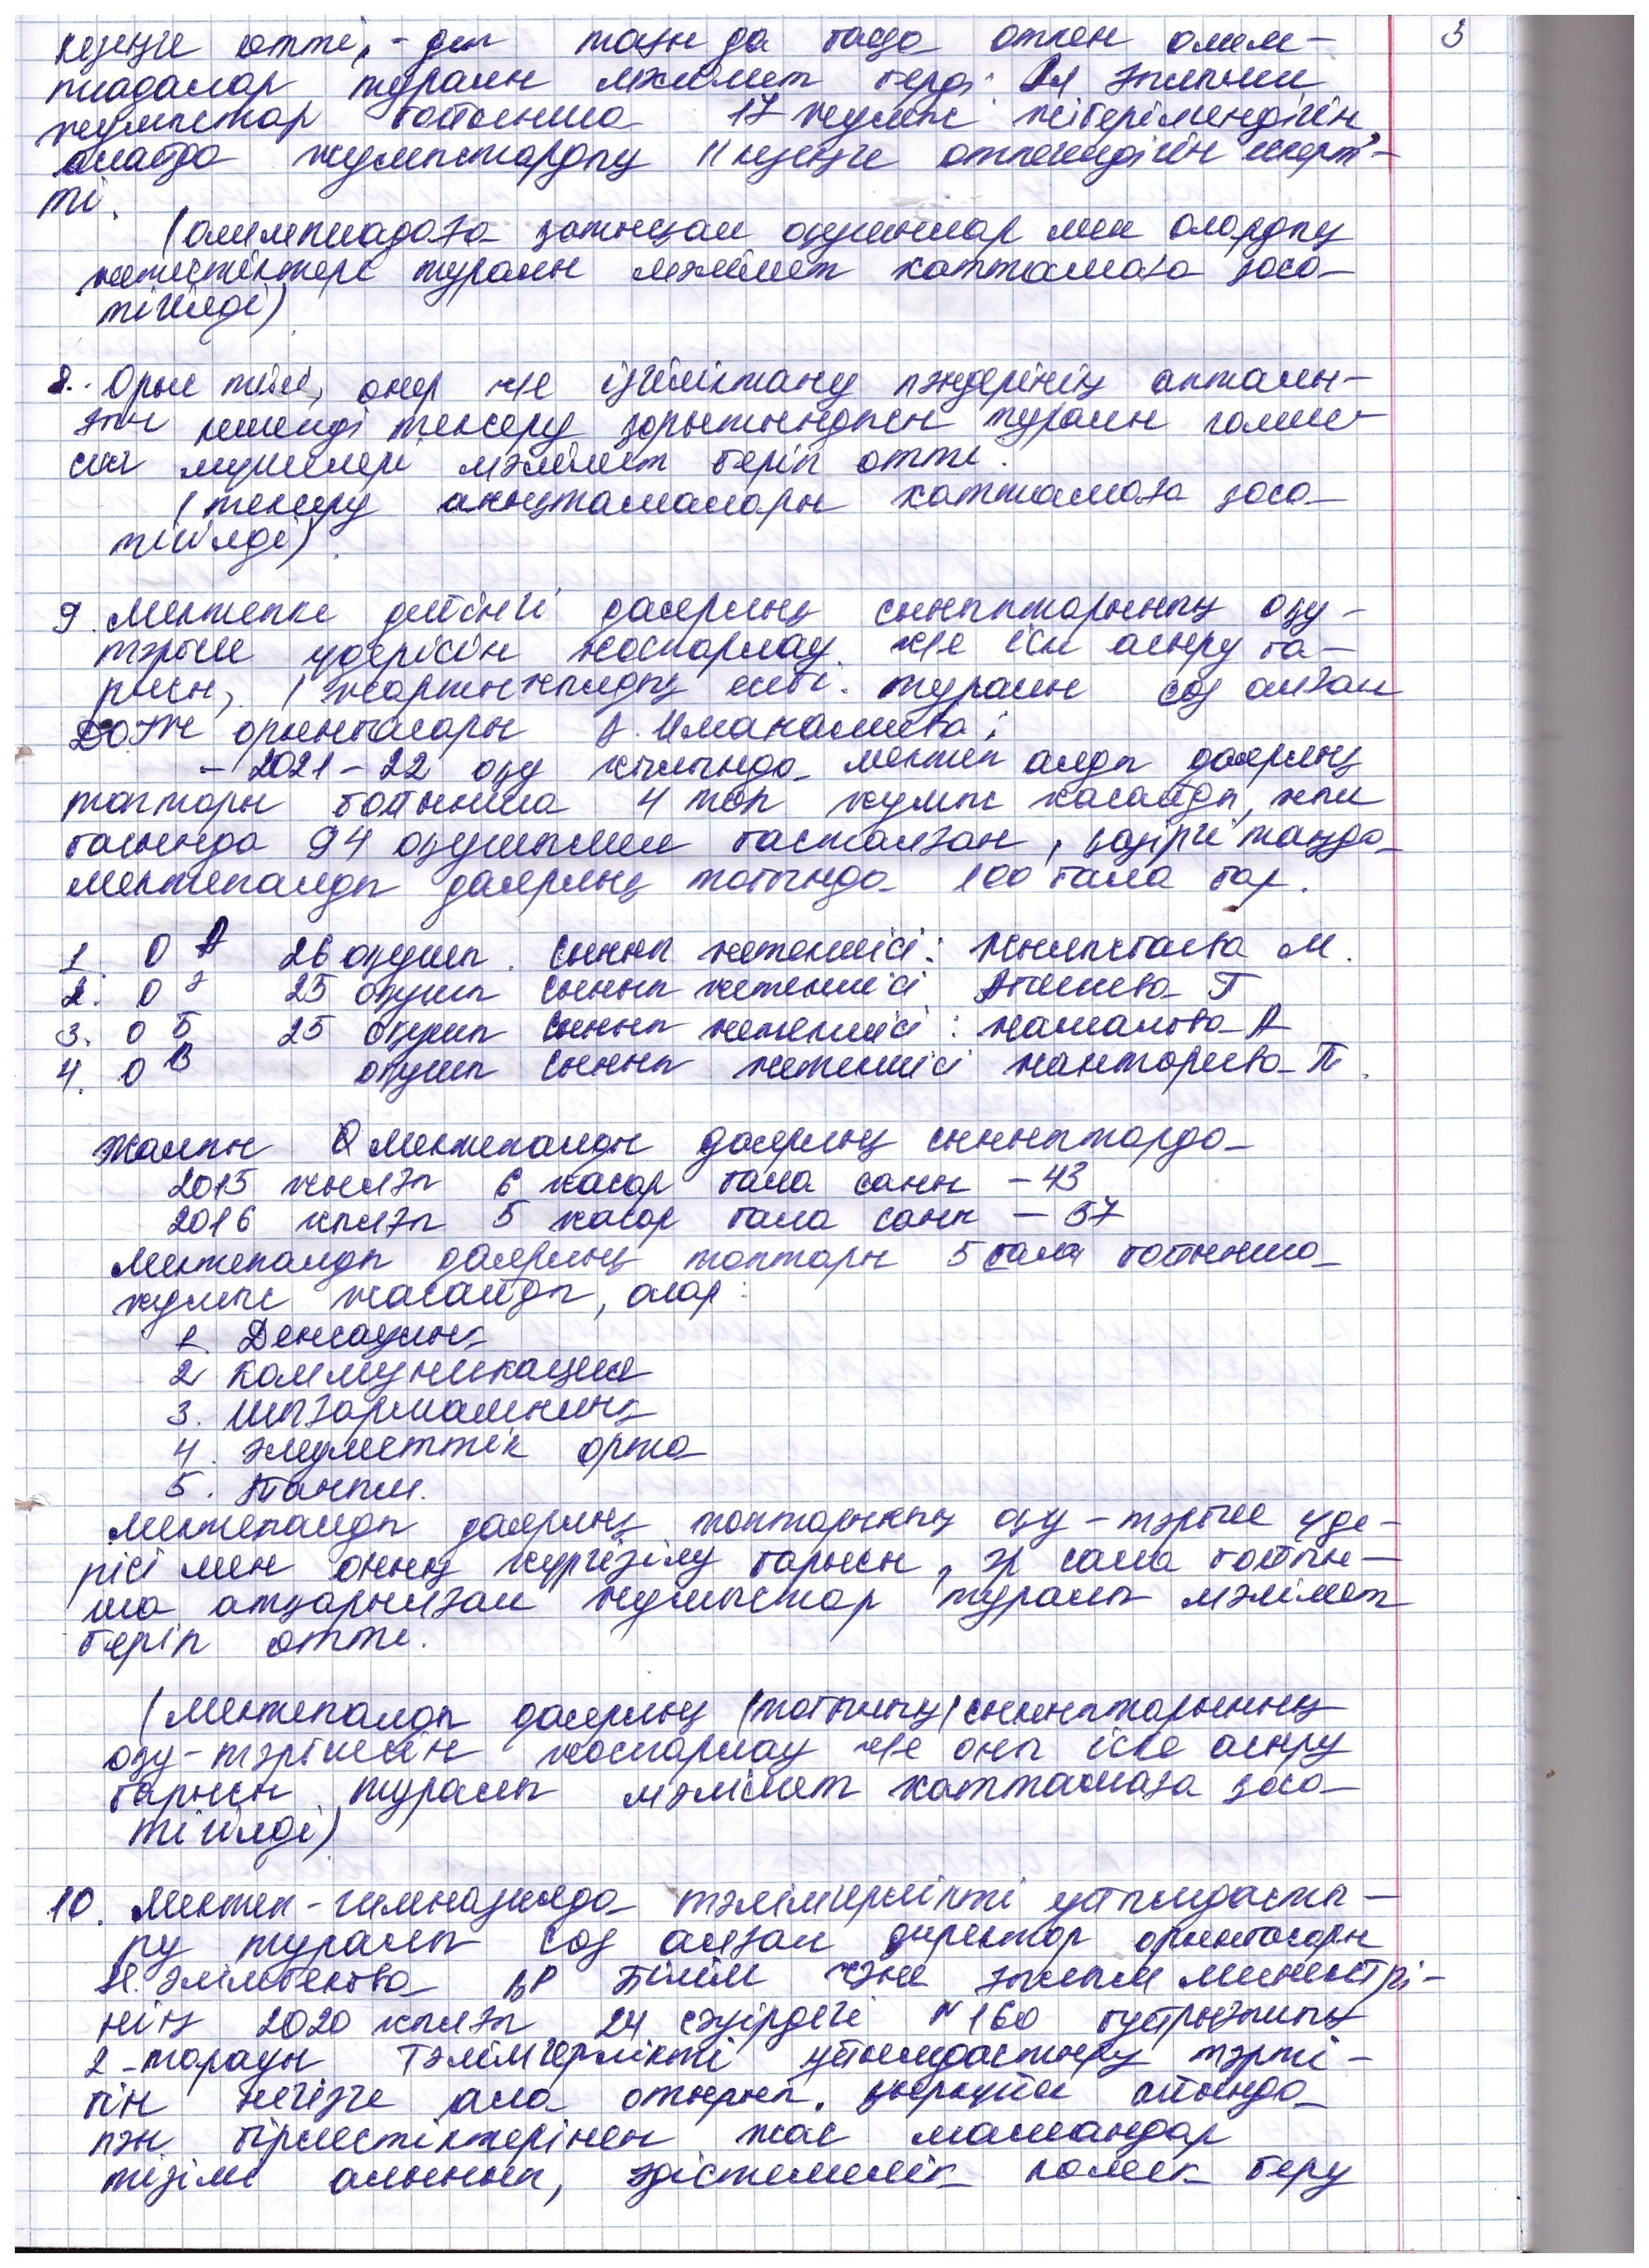 3
кезеңге өтті, - деп тағы да басқа өткен олим-
пиадалар туралы мәлімет берді. Ал ғылыми
жұмыстар бойынша 17 жұмыс жіберілмендігін,
алайда жұмыстардың II кезеңге өтпегендігін ескерт-
ті.
(олимпиадаға қатысқан оқушылар мен олардың
жетістіктері туралы мәлімет хаттамаға қоса
тігілді)
8. Орыс тілі, өнер ж/е ізгілікті тану пәндерінің апталы-
ғын кешенді тексеру қорытындысын туралы комис-
сия мүшелері мәлімет беріп өтті.
(тексеру анықтамалары хаттамаға қоса
тігілді)
9. Мектепке дейінгі даярлық сыныптарының оқу-
тәрбие үдерісін жоспарлау ж/е іске асыру ба-
рысы, I жартыжылдық есебі туралы сөз алған
ДОІЖ орынбасары А. Иманалиева;
- 2021-22 оқу жылында мектеп алды даярлық
топтары бойынша 4 топ жұмыс жасайды, жыл
басында 94 оқушымен басталған, қазіргі таңда
мектепалды даярлық тобында 100 бала бар.
1. 0 А 26 оқушы. Сынып жетекшісі: М.
2. 0 Ә 25 оқушы сынып жетекшісі Г
3. 0 Б 25 оқушы сынып жетекшісі: А
4. 0 В оқушы сынып жетекшісі
Жалпы мектепалды даярлық сыныптарда
2015 жылғы 6 жасар бала саны - 43
2016 жылғы 5 жасар бала саны - 57
Мектепалды даярлық топтары 5 сала бойынша
жұмыс жасайды, олар:
1. Денсаулық
2. Коммуникация
3. Шығармашылық
4. Әлеуметтік орта
5. Таным.
Мектепалды даярлық топтарының оқу-тәрбие үде-
рісі мен оның жүргізілу барысы, әр сала бойын-
ша атқарылған жұмыстар туралы мәлімет
беріп өтті.
(Мектепалды даярлық (тобының) сыныптарының
оқу-тәрбиесін жоспарлау ж/е оны іске асыру
барысы туралы мәлімет хаттамаға қоса
тігілді)
10. Мектеп-гимназияда тәлімгерлікті ұйымдасты-
ру туралы сөз алған директор орынбасары
Н. Әлімбекова ҚР Білім және ғылым министрі-
нің 2020 жылғы 24 сәуірдегі №160 бұйрығының
2-тарауы Тәлімгерлікті ұйымдастыру тәрті-
бін негізге ала отырып, қыркүйек айында
пән бірлестіктерінен жас мамандар
тізімі алынып, әдістемелік көмек беру